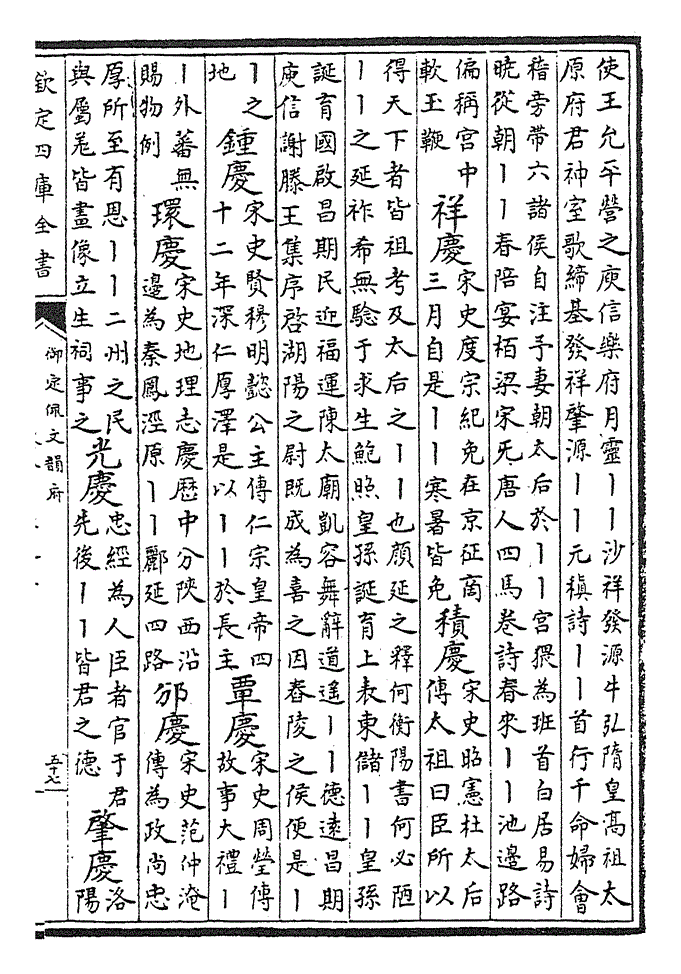 使王允平營之庾信樂府月靈丨丨沙祥發源牛弘隋皇髙祖太
原府君神室歌締基發祥肇源丨丨元稹詩丨丨首行千命婦會
稽旁帶六諸侯自注予妻朝太后於丨丨宮猥為班首白居易詩
曉從朝丨丨春陪宴栢梁宋旡唐人四馬卷詩春來丨丨池邉路
偏稱宮中
軟玉鞭
祥慶
宋史度宗紀免在京征商
三月自是丨丨寒暑皆免
積慶
宋史昭憲杜太后
傳太祖曰臣所以
得天下者皆祖考及太后之丨丨也顔延之釋何衡陽書何必陋
丨丨之延祚希無驗于求生鮑照皇孫誕育上表東儲丨丨皇孫
誕育國啟昌期民迎福運陳太廟凱容舞辭道遙丨丨德遠昌期
庾信謝滕王集序啓湖陽之尉既成為喜之因舂陵之侯便是丨
丨之
地
鍾慶
宋史賢穆明懿公主傳仁宗皇帝四
十二年深仁厚澤是以丨丨於長主
覃慶
宋史周瑩傳
故事大禮丨
丨外蕃無
賜物例
環慶
宋史地理志慶厯中分陜西沿
邊為秦鳳涇原丨丨鄜延四路
邠慶
宋史范仲淹
傳為政尚忠
厚所至有恩丨丨二州之民
與屬羌皆畫像立生祠事之
光慶
忠經為人臣者官于君
先後丨丨皆君之德
肇慶
洛
陽
欽定四庫全書
御定佩文韻府
五十七